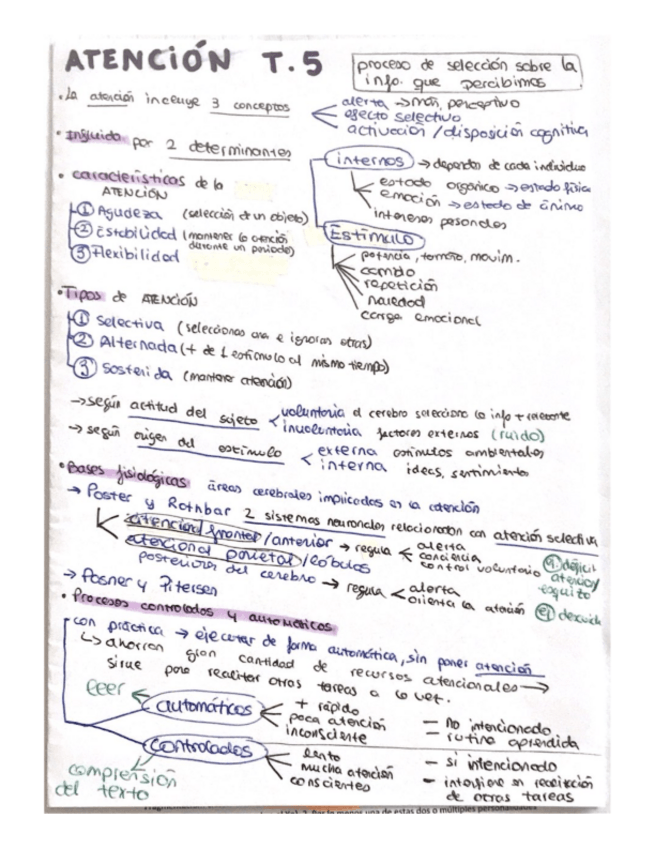 ATENCIÓN T.5
proceso de selección sobre la
info. que percibimos
• La atención incluye 3 conceptos
alerta → más perceptivo
efecto selectivo
activación / disposición cognitiva
• Influido por 2 determinantes
internos → depende de cada individuo
estado orgánico → estado físico
emoción → estado de ánimo
intereses personales
Estímulo
potencia, tamaño, movim.
cambio
repetición
novedad
carga emocional
• características de la
ATENCIÓN
① Agudeza (selección de un objeto)
② Estabilidad (mantener la atención
durante un periodo)
③ Flexibilidad
• Tipos de ATENCIÓN
① Selectiva (seleccionas una e ignoras otras)
② Alternada (+ de 1 estímulo al mismo tiempo)
③ Sostenida (mantener atención)
→ según actitud del sujeto
voluntaria el cerebro selecciona la info + relevante
involuntaria factores externos (ruido)
→ según origen del estímulo
externa estímulos ambientales
interna ideas, sentimientos
• Bases fisiológicas áreas cerebrales implicadas en la atención
→ Poster y Rothbar 2 sistemas neuronales relacionados con atención selectiva
atencional frontal/anterior → regula
alerta
conciencia
control voluntario
atencional parietal/lóbulos
posteriores del cerebro → regula
alerta
orienta la atención
déficit
atención
→ Posner y Pitersen
• Procesos controlados y automáticos
con práctica → ejecutar de forma automática, sin poner atención
↳ ahorran gran cantidad de recursos atencionales →
sirve para realizar otras tareas a la vez.
leer
automáticos
+ rápido
poca atención
inconsciente
— no intencionado
— rutina aprendida
controlados
lento
mucha atención
conscientes
— si intencionado
— interfiere en realización
de otras tareas
comprensión
del texto
2. Por lo menos una de estas dos o múltiples personalidades